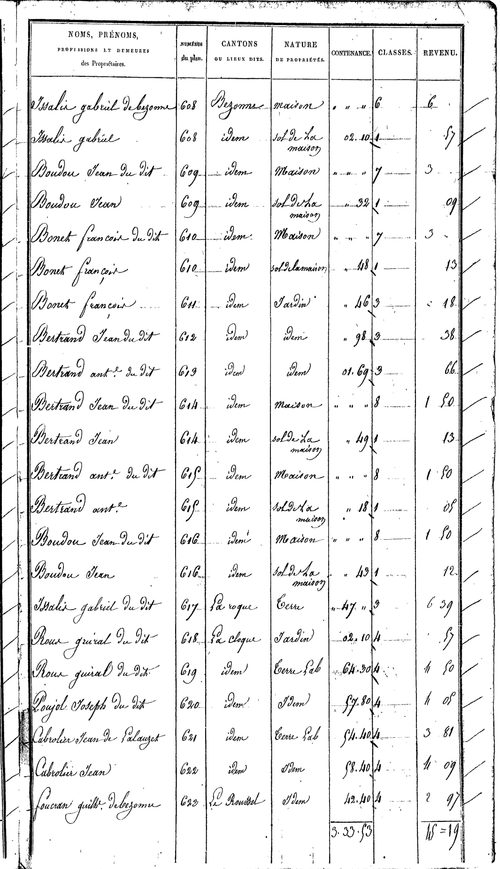 NOMS, PRÉNOMS, PROFESSIONS ET DEMEURES des Propriétaires. NUMÉROS du plan. CANTONS OU LIEUX DITS. NATURE DE PROPRIÉTÉS. CONTENANCE. CLASSES. REVENU.
Issalis gabriel de bezonne 608 Bezonne maison " " " 6 6
Issalis gabriel 608 idem sol de La maison 02. 10 1 57
Boudou Jean du dit 609 idem Maison " " " 7 3
Boudou Jean 609 idem sol de La maison " 32 1 09
Bonet francois du dit 610 idem Maison " " " 7 3
Bonet françois 610 idem sol de la maison " 48 1 13
Bonet françois 611 idem Jardin " 46 3 18
Bertrand Jean du dit 612 idem idem " 98 3 38
Bertrand ant.e du dit 613 idem idem 01. 69 3 66
Bertrand Jean du dit 614 idem maison " " " 8 1 50
Bertrand Jean 614 idem sol de La maison " 49 1 13
Bertrand ant.e du dit 615 idem Maison " " " 8 1 50
Bertrand ant.e 615 idem sol de La maison " 18 1 05
Boudou Jean du dit 616 idem Maison " " " 8 1 50
Boudou Jean 616 idem sol de La maison " 43 1 12
Issalis gabriel du dit 617 La roque Terre " 47 " 3 6 39
Rous guiral du dit 618 La cloque Jardin 02. 10 4 57
Rous guiral du dit 619 idem Terre Lab 64. 30 4 4 50
Poujol Joseph du dit 620 idem Idem 57. 80 4 4 05
Cabrolier Jean de Lalauzet 621 idem Terre Lab 54. 40 4 3 81
Cabrolier Jean 622 idem Idem 58. 40 4 4 09
foucran guill.e de bezonne 623 Le Roussel Idem 42. 40 4 2 97
3. 33. 53 45 = 19